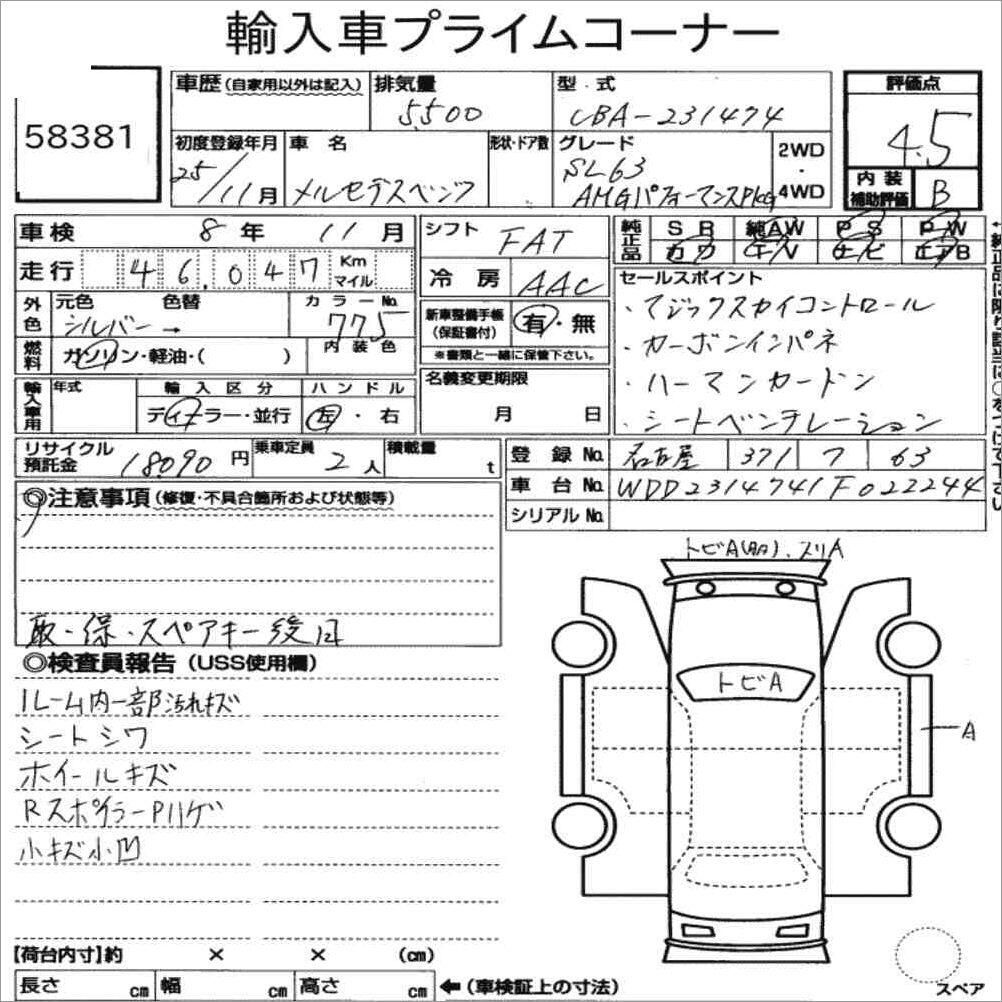 輸入車プライムコーナー
58381
車歴(自家用以外は記入) 排気量 5500 型・式 CBA-231474 評価点 4.5
初度登録年月 25/11月 車名 メルセデスベンツ 形状・ドア数 グレード SL63 AMGパフォーマンスPkg 2WD・4WD 内装補助評価 B
車検 8年 11月 シフト FAT 純正品 SR 純AW PS PW
カワ TV ナビ エアB
走行 46,047 Km マイル 冷房 AAC
セールスポイント
・マジックスカイコントロール
・カーボンインパネ
・ハーマンカードン
・シートベンチレーション
外色 元色 シルバー→ 色替 カラーNo. 775 新車整備手帳(保証書付) 有・無
※書類と一緒に保管下さい。
燃料 ガソリン・軽油・( ) 内装色
輸入車用 年式 輸入区分 ディーラー・並行 ハンドル 左・右 名義変更期限 月 日
リサイクル預託金 18090円 乗車定員 2人 積載量 t
登録No. 名古屋 371 フ 63
車台No. WDD2314741F022244
シリアルNo.
◎注意事項(修復・不具合箇所および状態等)
取・保・スペアキー後日
◎検査員報告(USS使用欄)
ルーム内一部汚れキズ
シートシワ
ホイールキズ
RスポイラーPハゲ
小キズ小凹
トビA ,スリA
トビA
A
【荷台内寸】約 × × (cm)
長さ cm 幅 cm 高さ cm ←(車検証上の寸法)
スペア